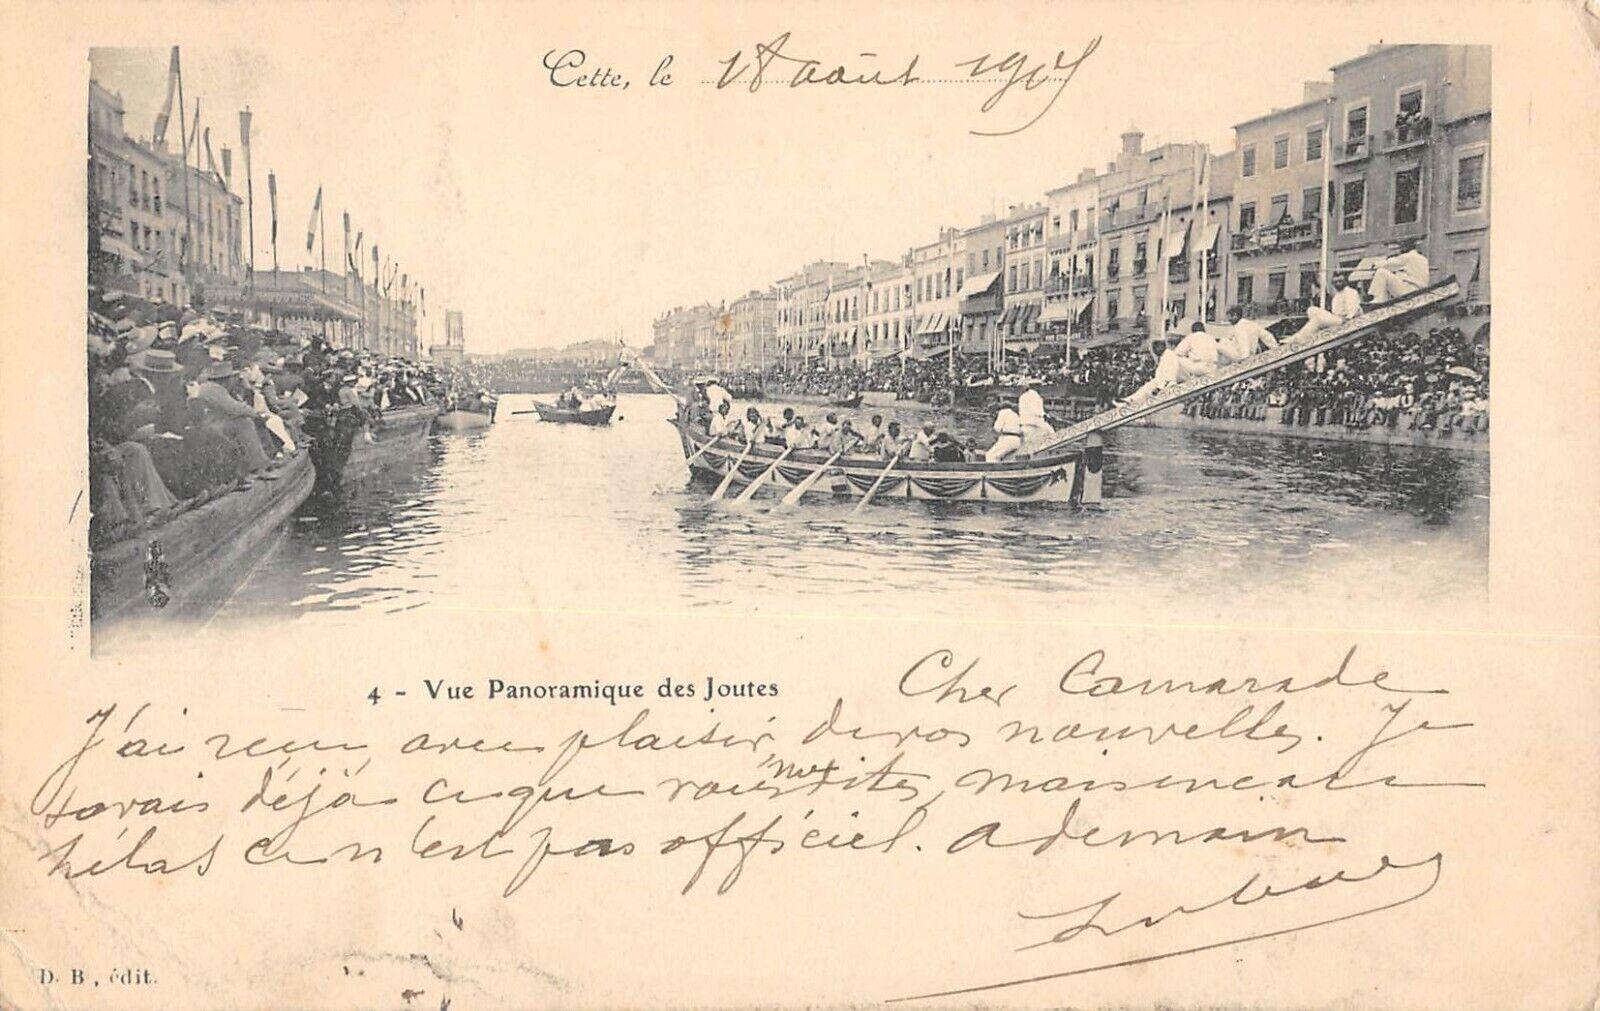 Cette, le 18 août 190
4 - Vue Panoramique des Joutes
Cher Camarade
J'ai reçu avec plaisir de vos nouvelles. Je
savais déjà ce que vous me dites, mais
hélas ce n'est pas officiel. A demain
D. B, édit.